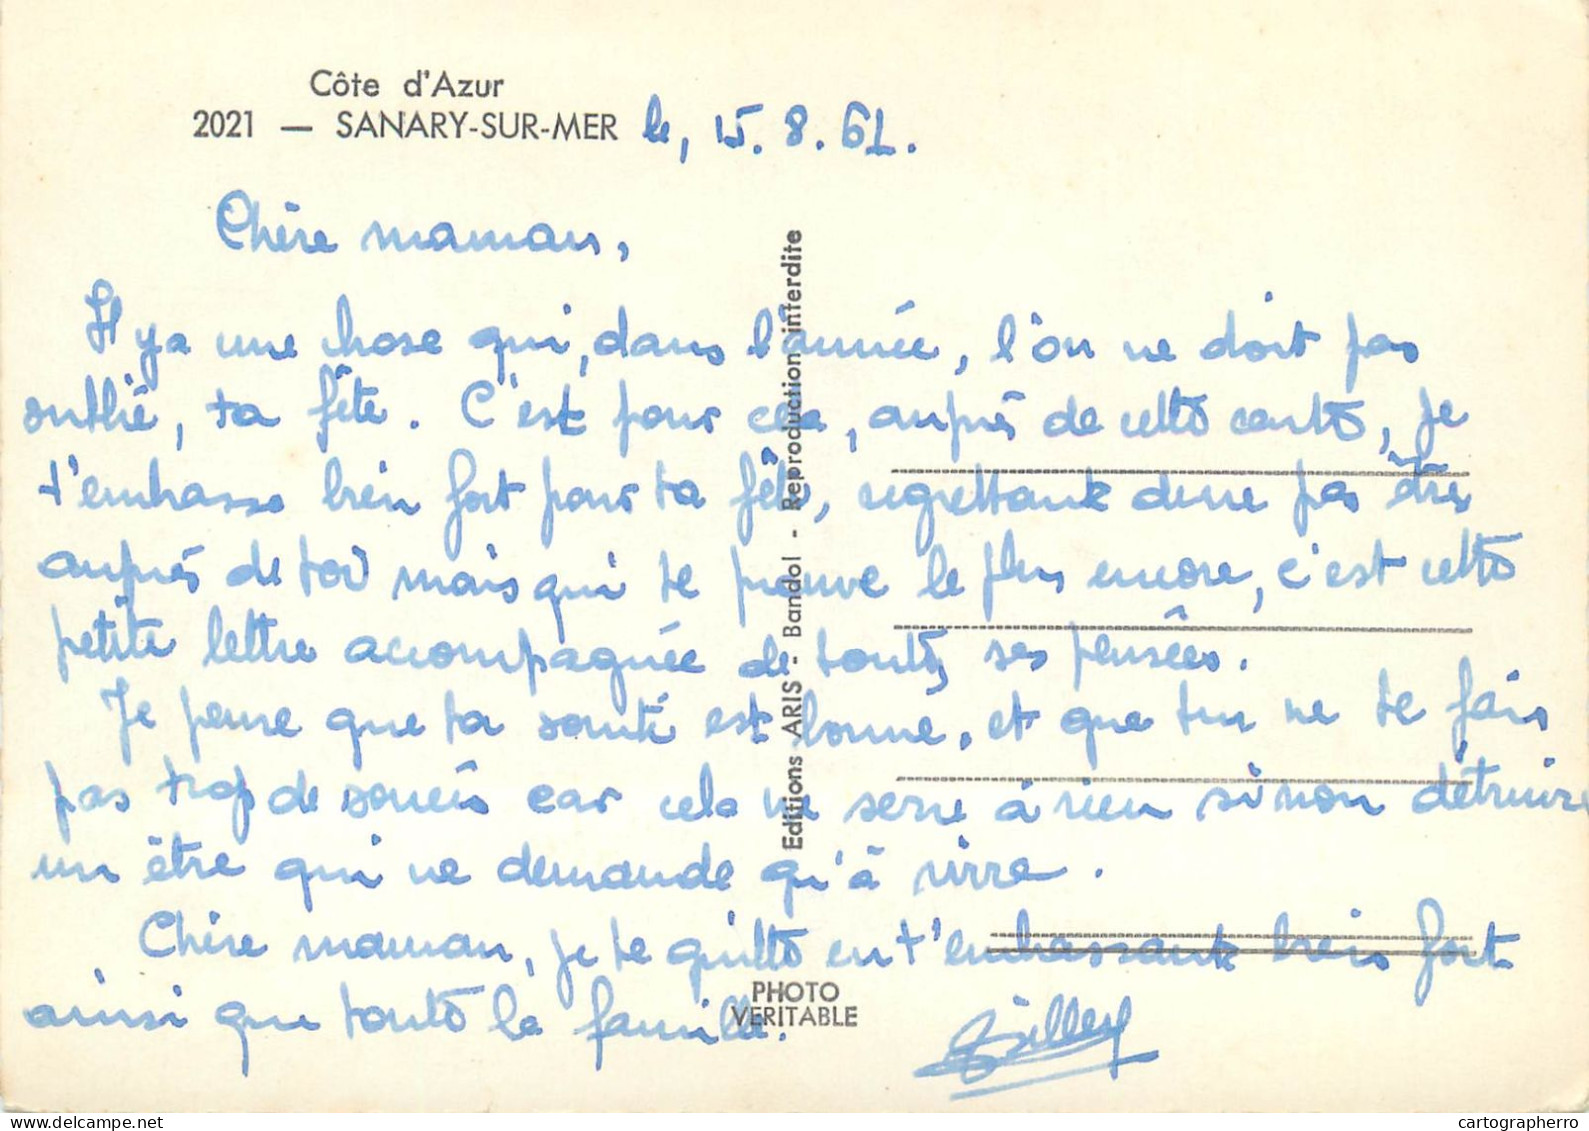 Côte d'Azur
2021 — SANARY-SUR-MER le, 15.8.61.
Chère maman,
Il y a une chose qui, dans l'année, l'on ne doit pas
oublié, ta fête. C'est pour cela, auprès de cette carte, je
t'embrasse bien fort pour ta fête, regrettant de ne pas être
auprès de toi mais qui te prouve le plus encore, c'est cette
petite lettre accompagnée de toutes ses pensées.
Je pense que ta santé est bonne, et que tu ne te fais
pas trop de soucis car cela ne serre à rien sinon détruire
un être qui ne demande qu'à vivre.
Chère maman, je te quitte en t'embrassant bien fort
ainsi que toute la famille.
Editions ARIS - Bandol - Reproduction interdite
PHOTO
VERITABLE
delcampe.net
cartographerro